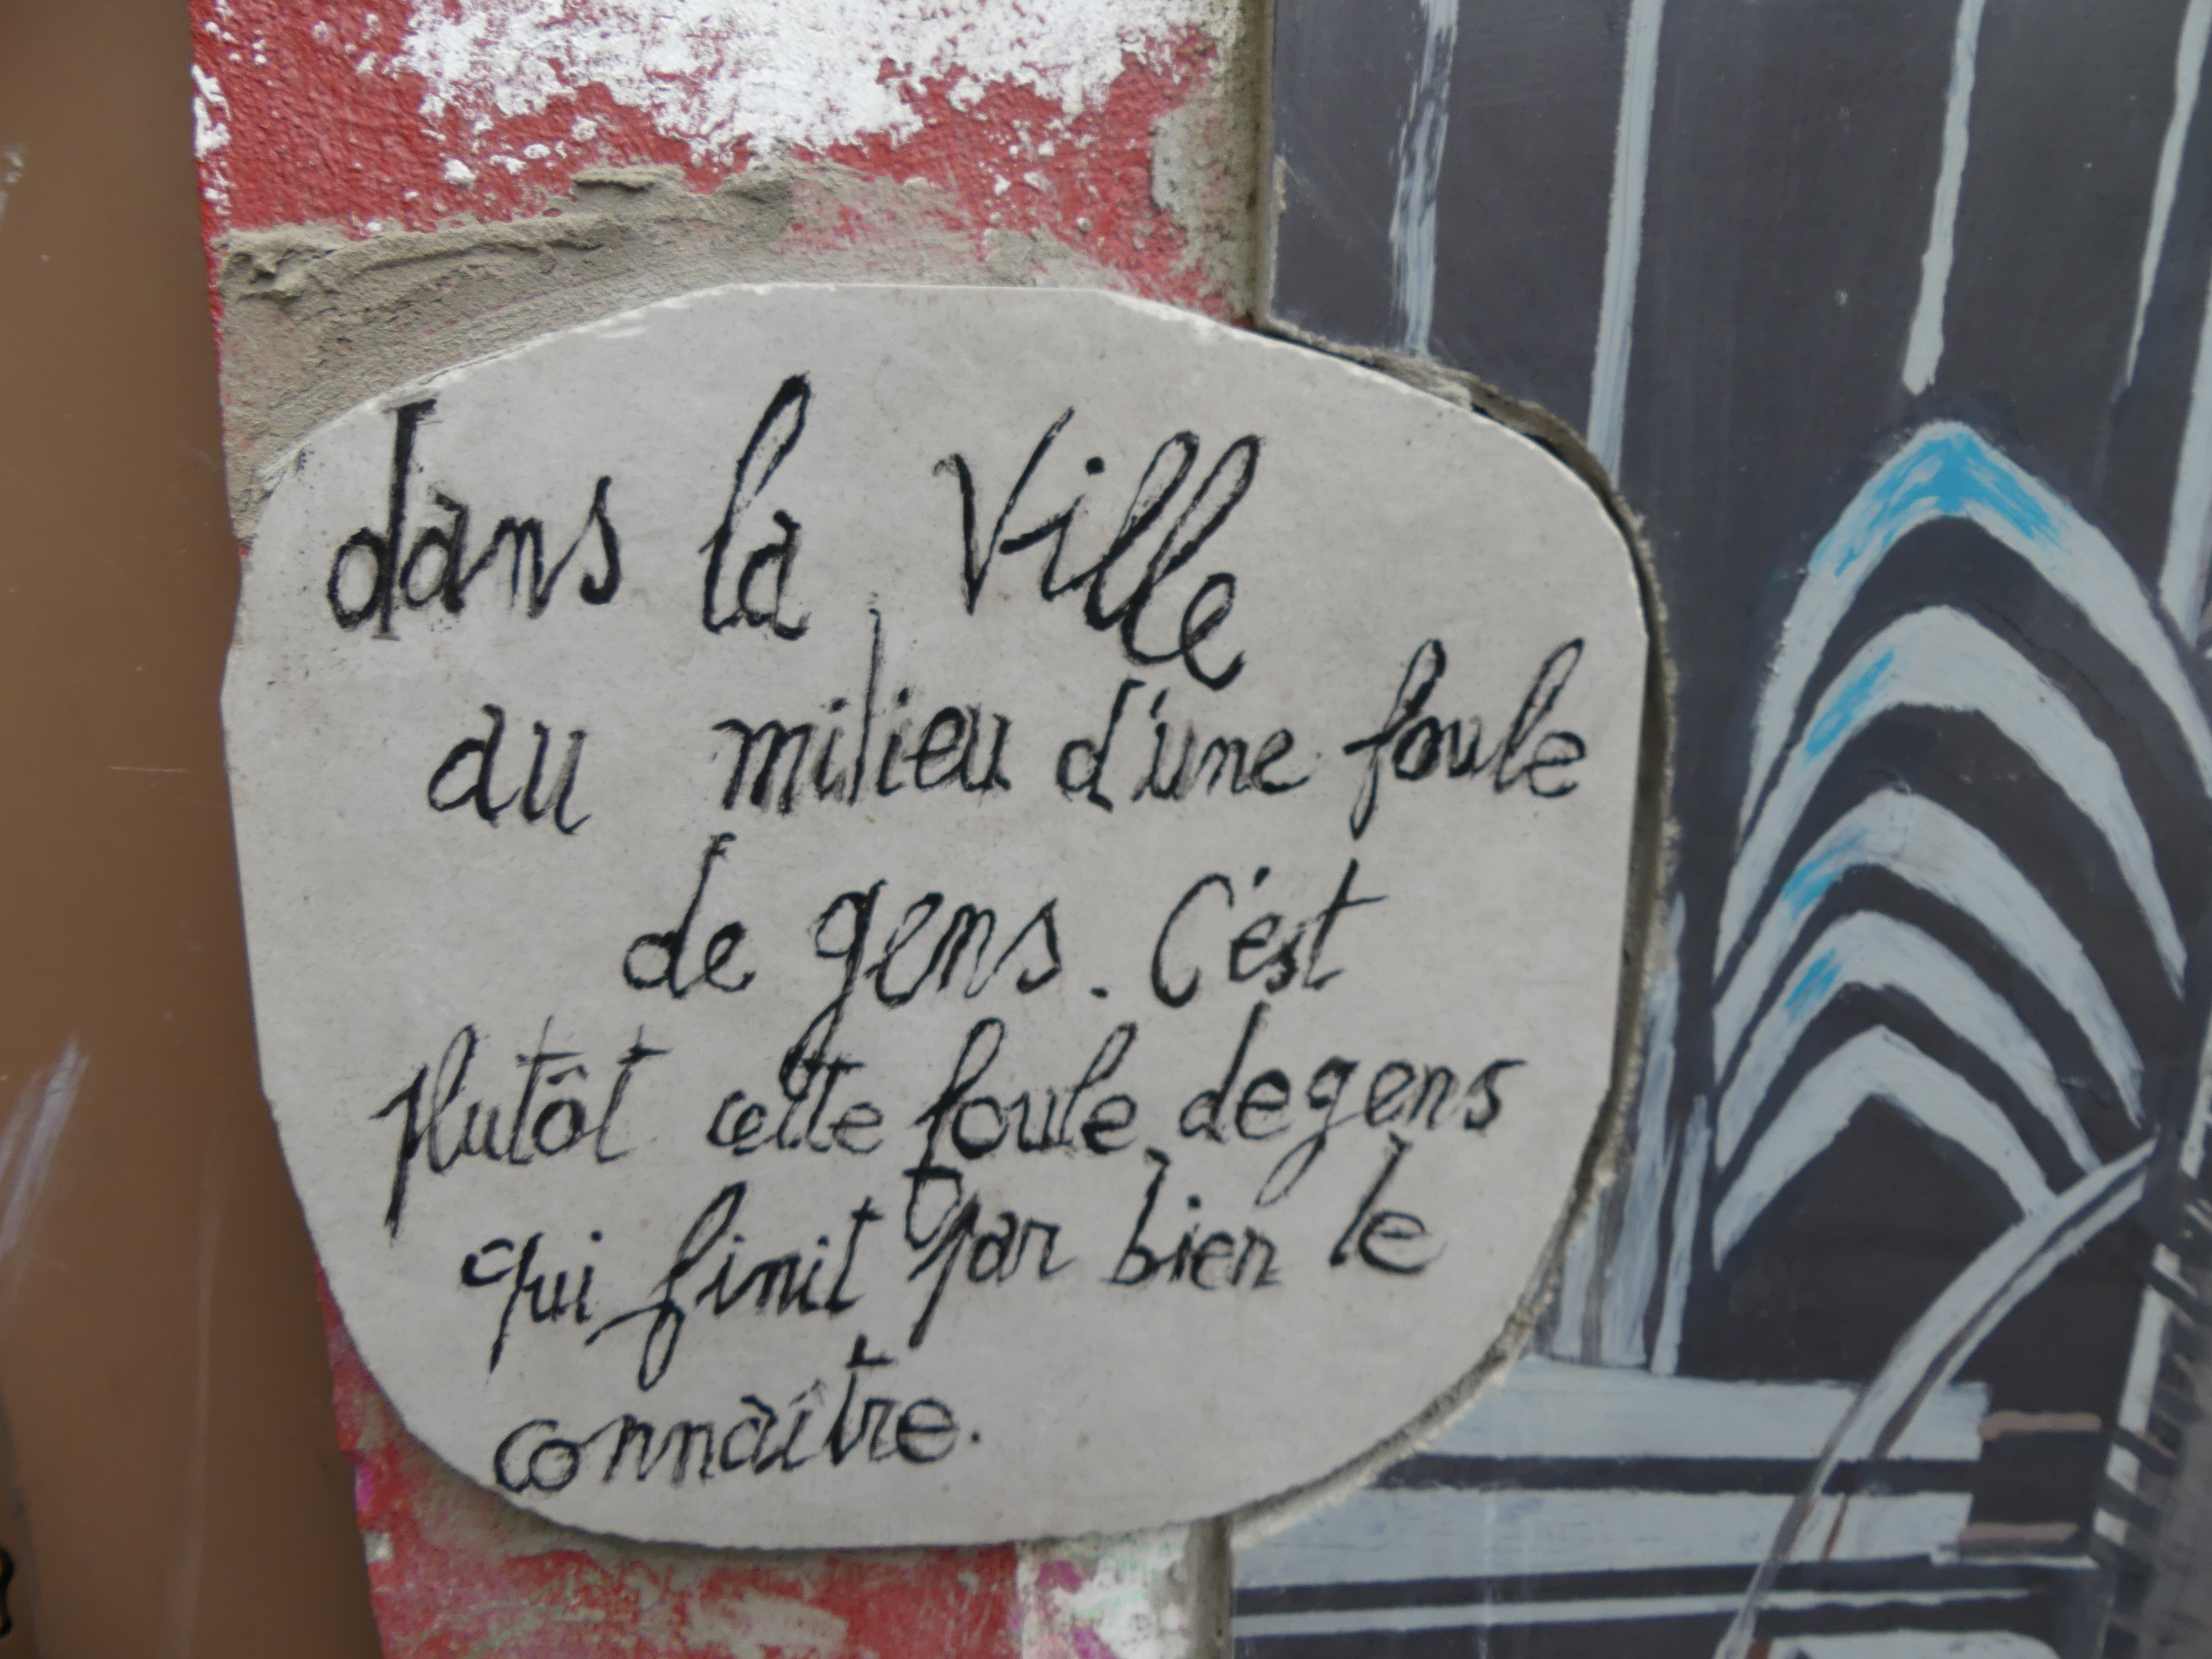 dans la Ville
au milieu d'une foule
de gens. C'est
plutôt cette foule de gens
qui finit par bien le
connaître.